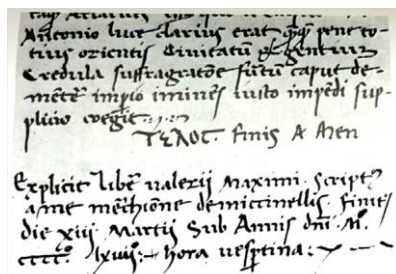 Antonio luce clarius erat qͥqꝫ pene to-
tius orientis Civitatũ & gentium
Credula suffragratõe fultũ caput de-
mẽtẽ impio iminẽs iusto impẽdi sup-
plicio coegit
ΤΕΛΟC. Finis A Men
Explicit libẽ Valerii Maximi. Scriptꝰ
a me mẽthione demiccinellis. Finies
die xiij. Martii Sub Annis dnĩ. Mº.
ccccº. lxuiij: hora uesꝑtina: